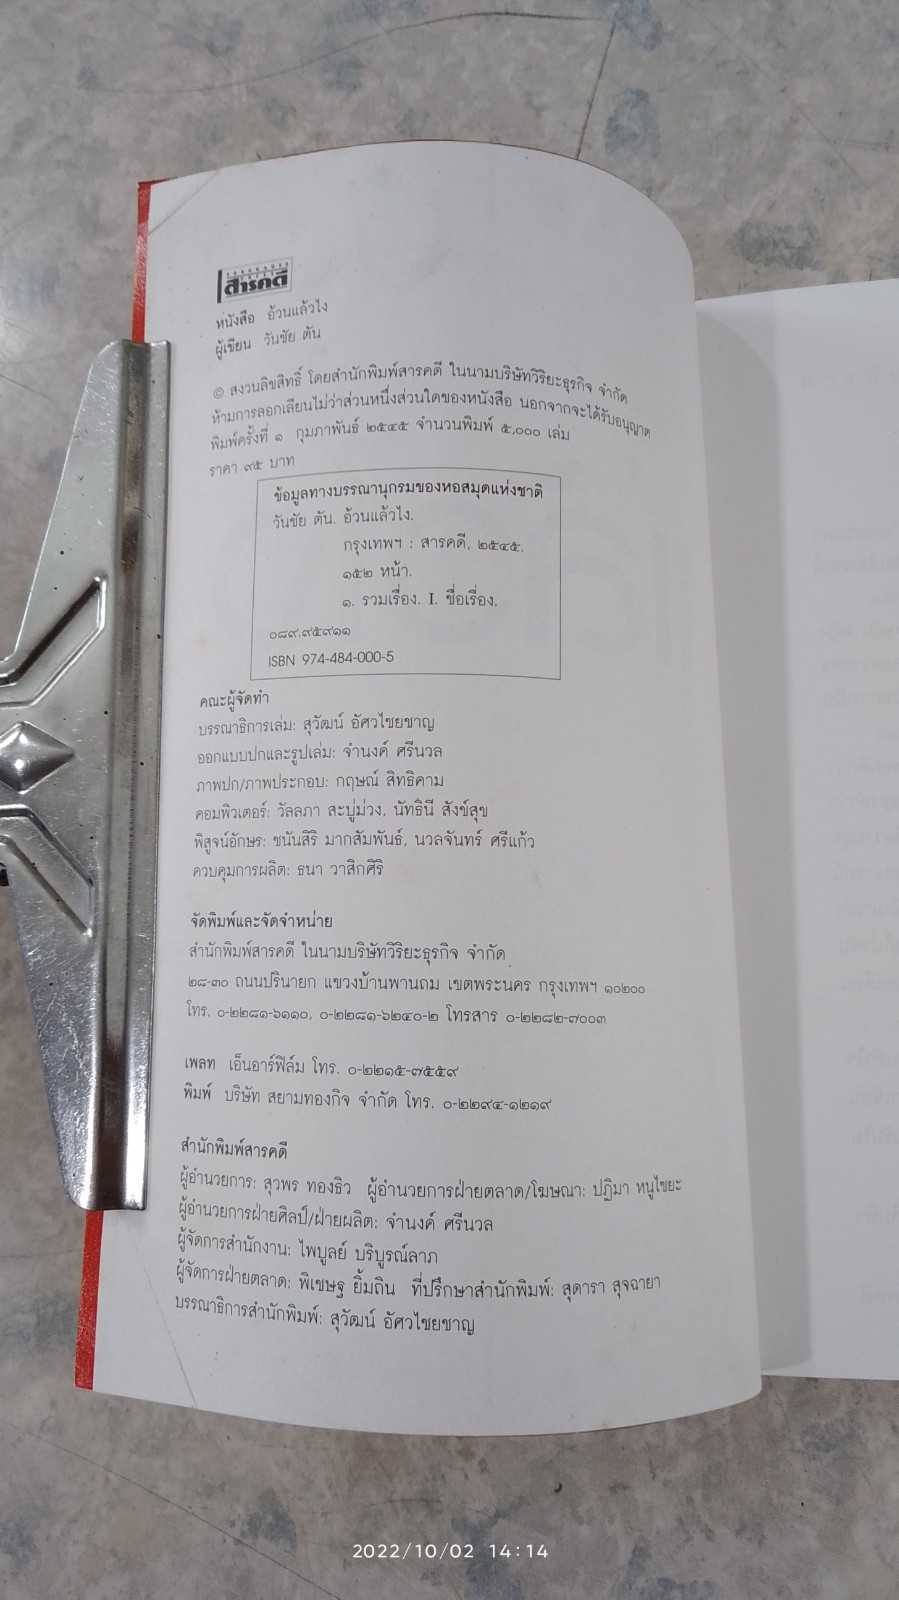 สารคดี
หนังสือ อ้วนแล้วไง
ผู้เขียน วันชัย ตัน
© สงวนลิขสิทธิ์ โดยสำนักพิมพ์สารคดี ในนามบริษัทวิริยะธุรกิจ จำกัด
ห้ามการลอกเลียนไม่ว่าส่วนหนึ่งส่วนใดของหนังสือ นอกจากจะได้รับอนุญาต
พิมพ์ครั้งที่ ๑ กุมภาพันธ์ ๒๕๔๕ จำนวนพิมพ์ ๕,๐๐๐ เล่ม
ราคา ๙๕ บาท
ข้อมูลทางบรรณานุกรมของหอสมุดแห่งชาติ
วันชัย ตัน. อ้วนแล้วไง.
กรุงเทพฯ : สารคดี, ๒๕๔๕.
๑๕๒ หน้า.
๑. รวมเรื่อง. I. ชื่อเรื่อง.
๐๘๙.๙๕๙๑๑
ISBN 974-484-000-5
คณะผู้จัดทำ
บรรณาธิการเล่ม: สุวัฒน์ อัศวไชยชาญ
ออกแบบปกและรูปเล่ม: จำนงค์ ศรีนวล
ภาพปก/ภาพประกอบ: กฤษณ์ สิทธิคาม
คอมพิวเตอร์: วัลลภา สะบู่ม่วง, นัทธินี สังข์สุข
พิสูจน์อักษร: ชนันสิริ มากสัมพันธ์, นวลจันทร์ ศรีแก้ว
ควบคุมการผลิต: ธนา วาสิกศิริ
จัดพิมพ์และจัดจำหน่าย
สำนักพิมพ์สารคดี ในนามบริษัทวิริยะธุรกิจ จำกัด
๒๘-๓๐ ถนนปรินายก แขวงบ้านพานถม เขตพระนคร กรุงเทพฯ ๑๐๒๐๐
โทร. ๐-๒๒๘๑-๖๑๑๐, ๐-๒๒๘๑-๖๒๔๐-๒ โทรสาร ๐-๒๒๘๒-๗๐๐๓
เพลท เอ็นอาร์ฟิล์ม โทร. ๐-๒๒๑๕-๗๕๕๙
พิมพ์ บริษัท สยามทองกิจ จำกัด โทร. ๐-๒๒๙๔-๑๒๑๙
สำนักพิมพ์สารคดี
ผู้อำนวยการ: สุวพร ทองธิว ผู้อำนวยการฝ่ายตลาด/โฆษณา: ปฏิมา หนูไชยะ
ผู้อำนวยการฝ่ายศิลป์/ฝ่ายผลิต: จำนงค์ ศรีนวล
ผู้จัดการสำนักงาน: ไพบูลย์ บริบูรณ์ลาภ
ผู้จัดการฝ่ายตลาด: พิเชษฐ ยิ้มถิน ที่ปรึกษาสำนักพิมพ์: สุดารา สุจฉายา
บรรณาธิการสำนักพิมพ์: สุวัฒน์ อัศวไชยชาญ
2022/10/02 14:14